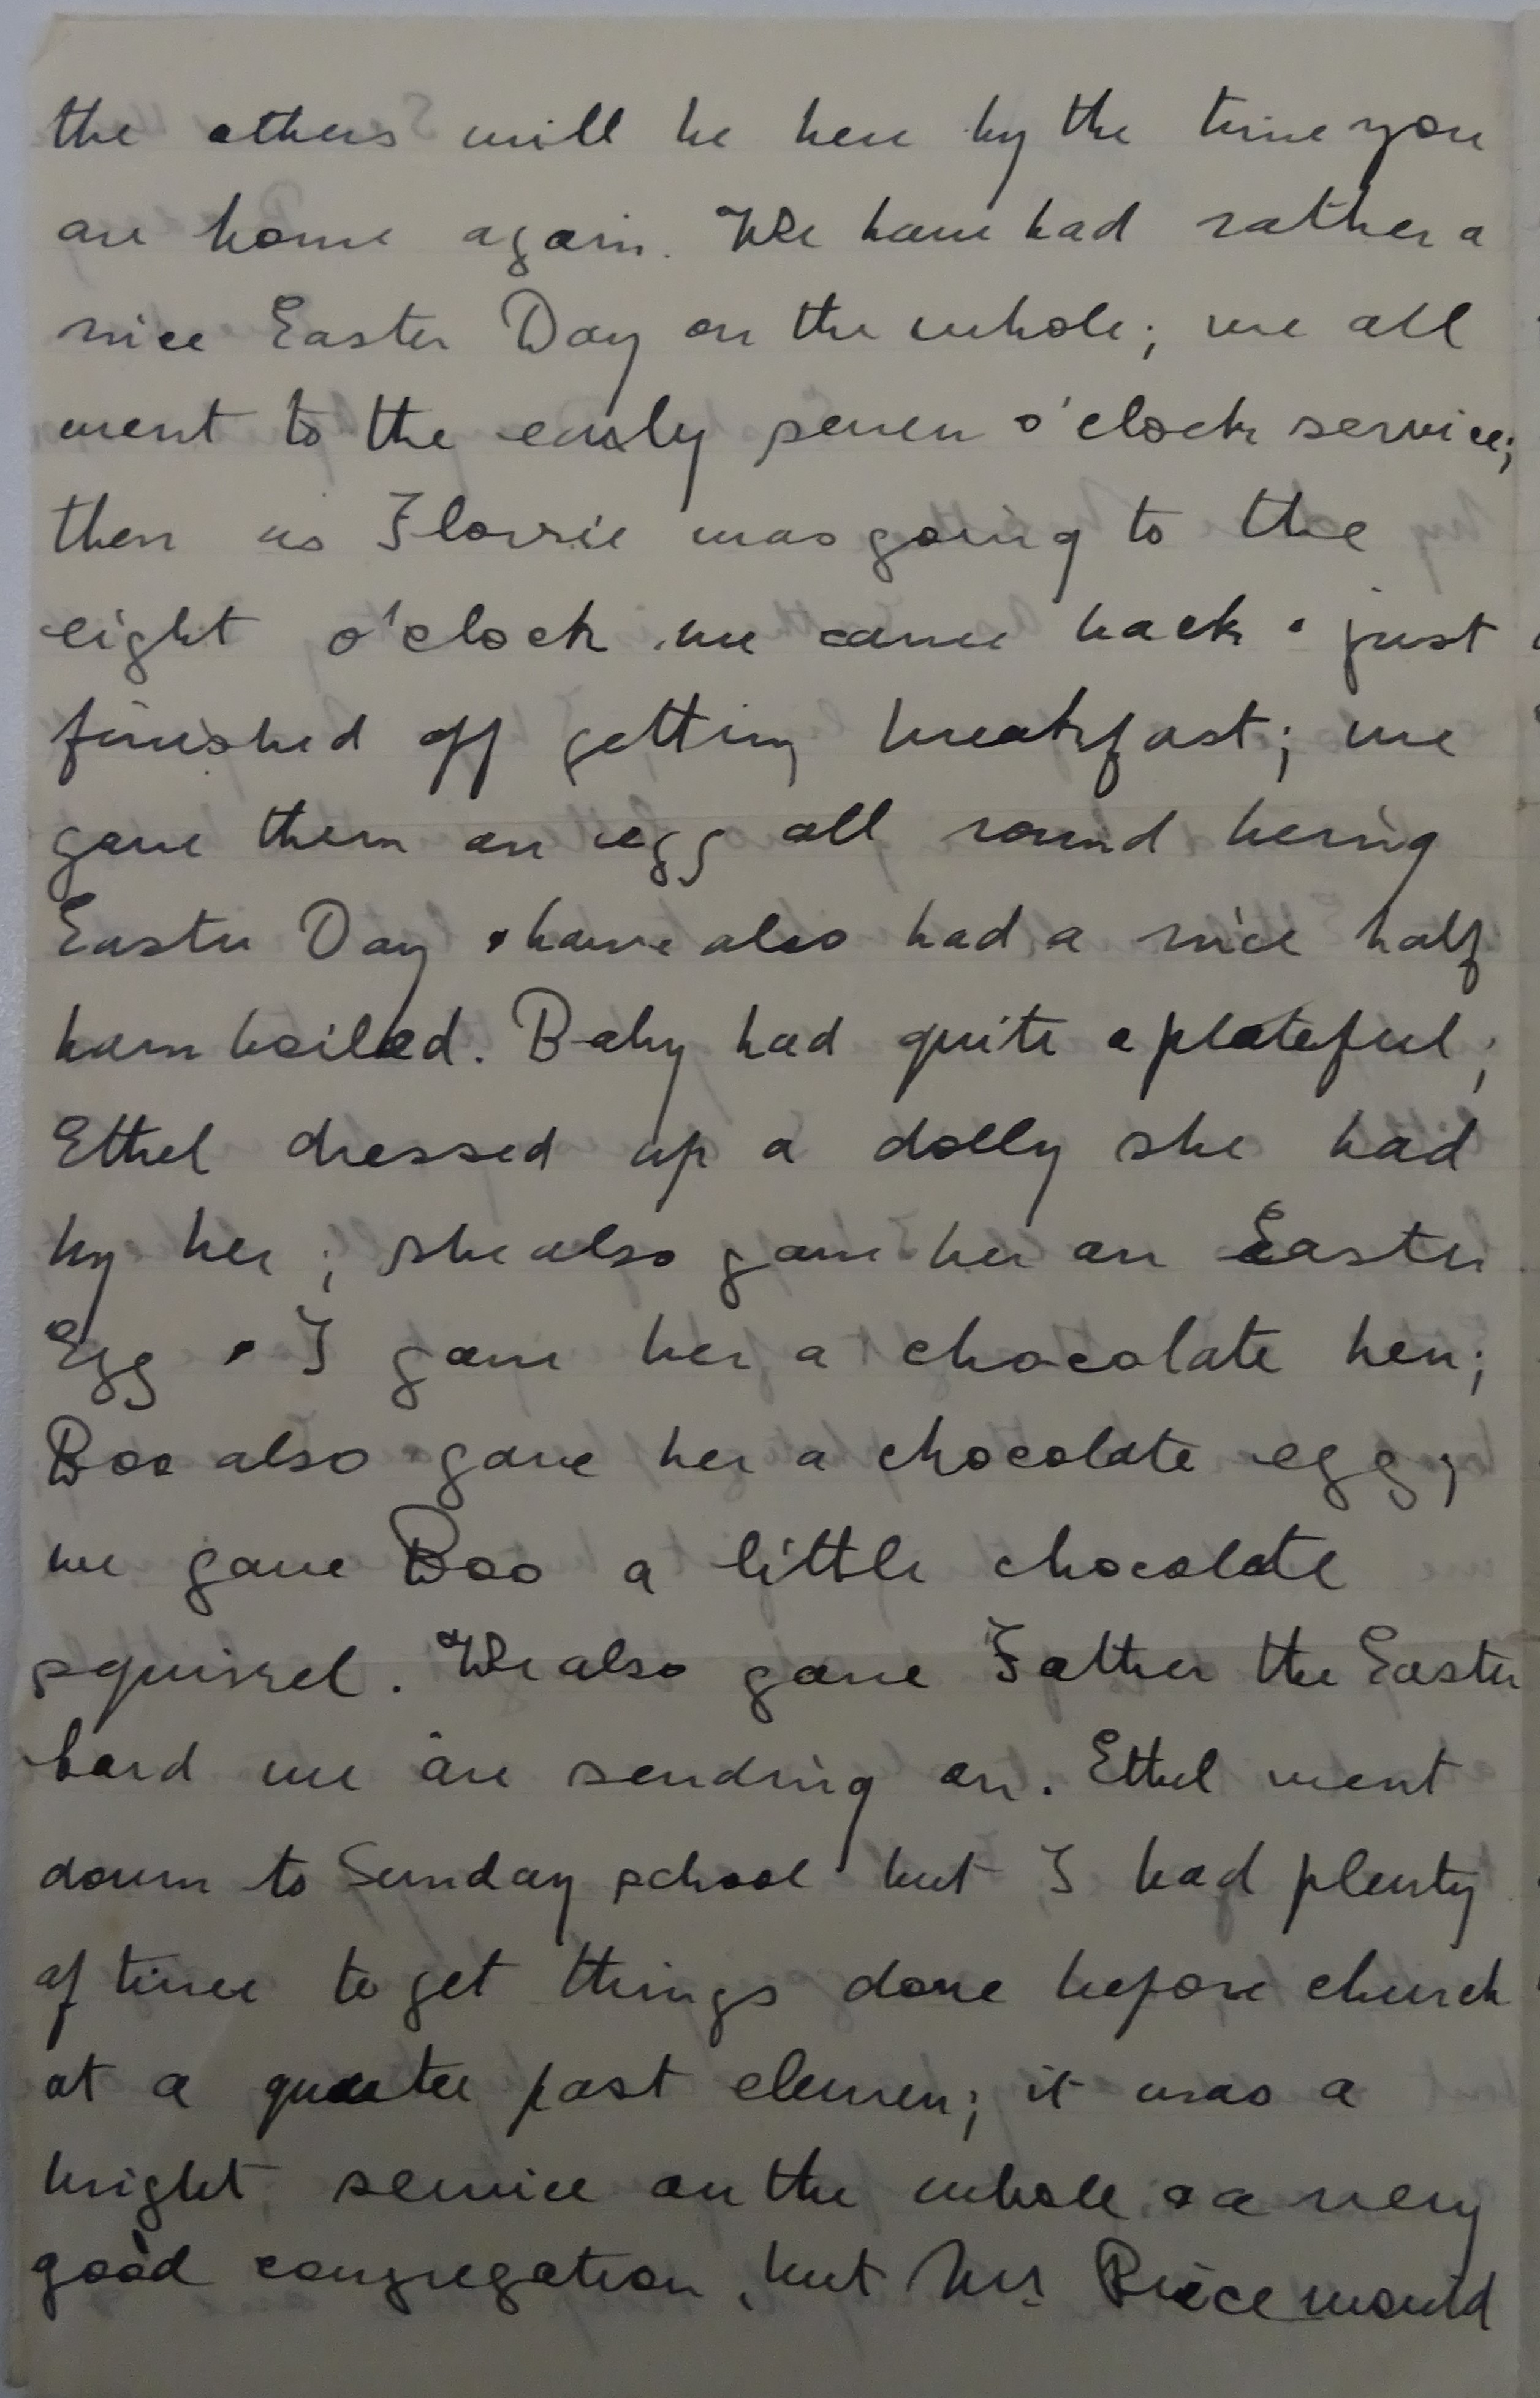 the others will be here by the time you
are home again. We have had rather a
nice Easter Day on the whole; we all
went to the early seven o'clock service;
then as Florrie was going to the
eight o'clock we came back & just
finished off getting breakfast; we
gave them an egg all round being
Easter Day & have also had a nice half
ham boiled. Baby had quite a plateful;
Ethel dressed up a dolly she had
by her; she also gave her an Easter
Egg & I gave her a chocolate hen;
Boo also gave her a chocolate egg;
we gave Boo a little chocolate
squirrel. We also gave Father the Easter
Card we are sending on. Ethel went
down to Sunday school but I had plenty
of time to get things done before church
at a quarter past eleven; it was a
bright service on the whole & a very
good congregation, but Mr Price would